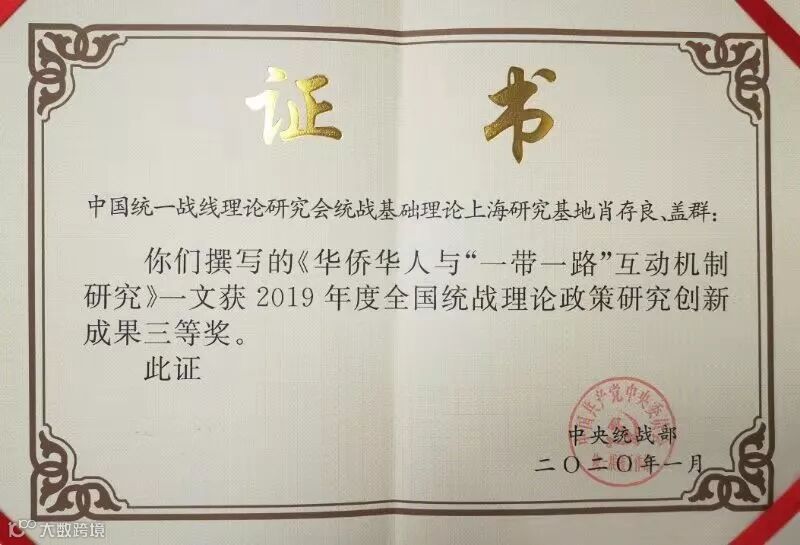 证书
中国统一战线理论研究会统战基础理论上海研究基地肖存良、盖群：
你们撰写的《华侨华人与“一带一路”互动机制
研究》一文获 2019 年度全国统战理论政策研究创新
成果三等奖。
此证
中国共产党中央委员会
中央统战部
二〇二〇年一月
大数跨境